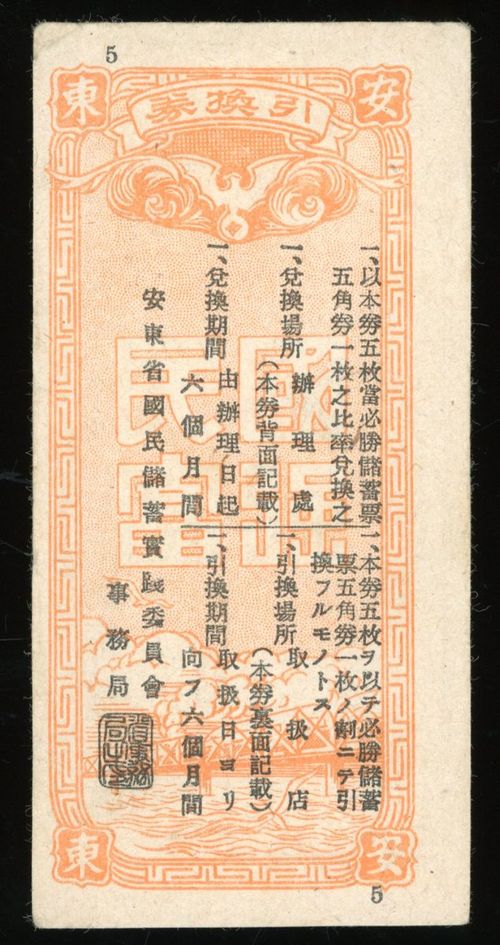 5
安東
引換券
國民
一、以本券五枚當必勝儲蓄票
五角券一枚之比率兌換之
一、兌換場所 辦理處
（本券背面記載）
一、兌換期間 由辦理日起
六個月間
一、本券五枚ヲ以テ必勝儲蓄
票五角券一枚ノ割ニテ引
換フルモノトス
一、引換場所 取扱店
（本券裏面記載）
一、引換期間 取扱日ヨリ
向フ六個月間
安東省國民儲蓄實踐委員會
事務局
安東
5